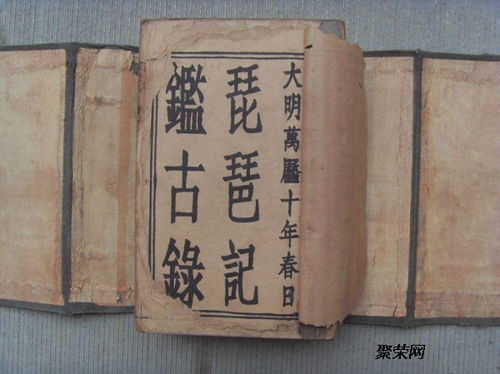 大明萬曆十年春日
琵琶記
鑑古錄
聚荣网